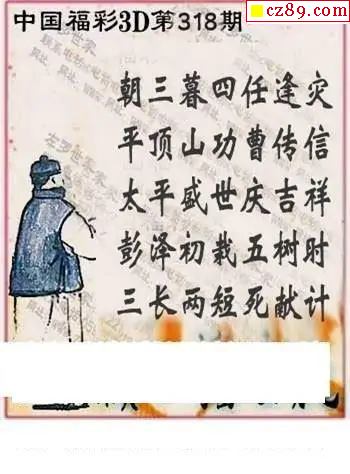 cz89.com
中国福彩3D第318期
朝三暮四任逢灾
平顶山功曹传信
太平盛世庆吉祥
彭泽初栽五树时
三长两短死献计